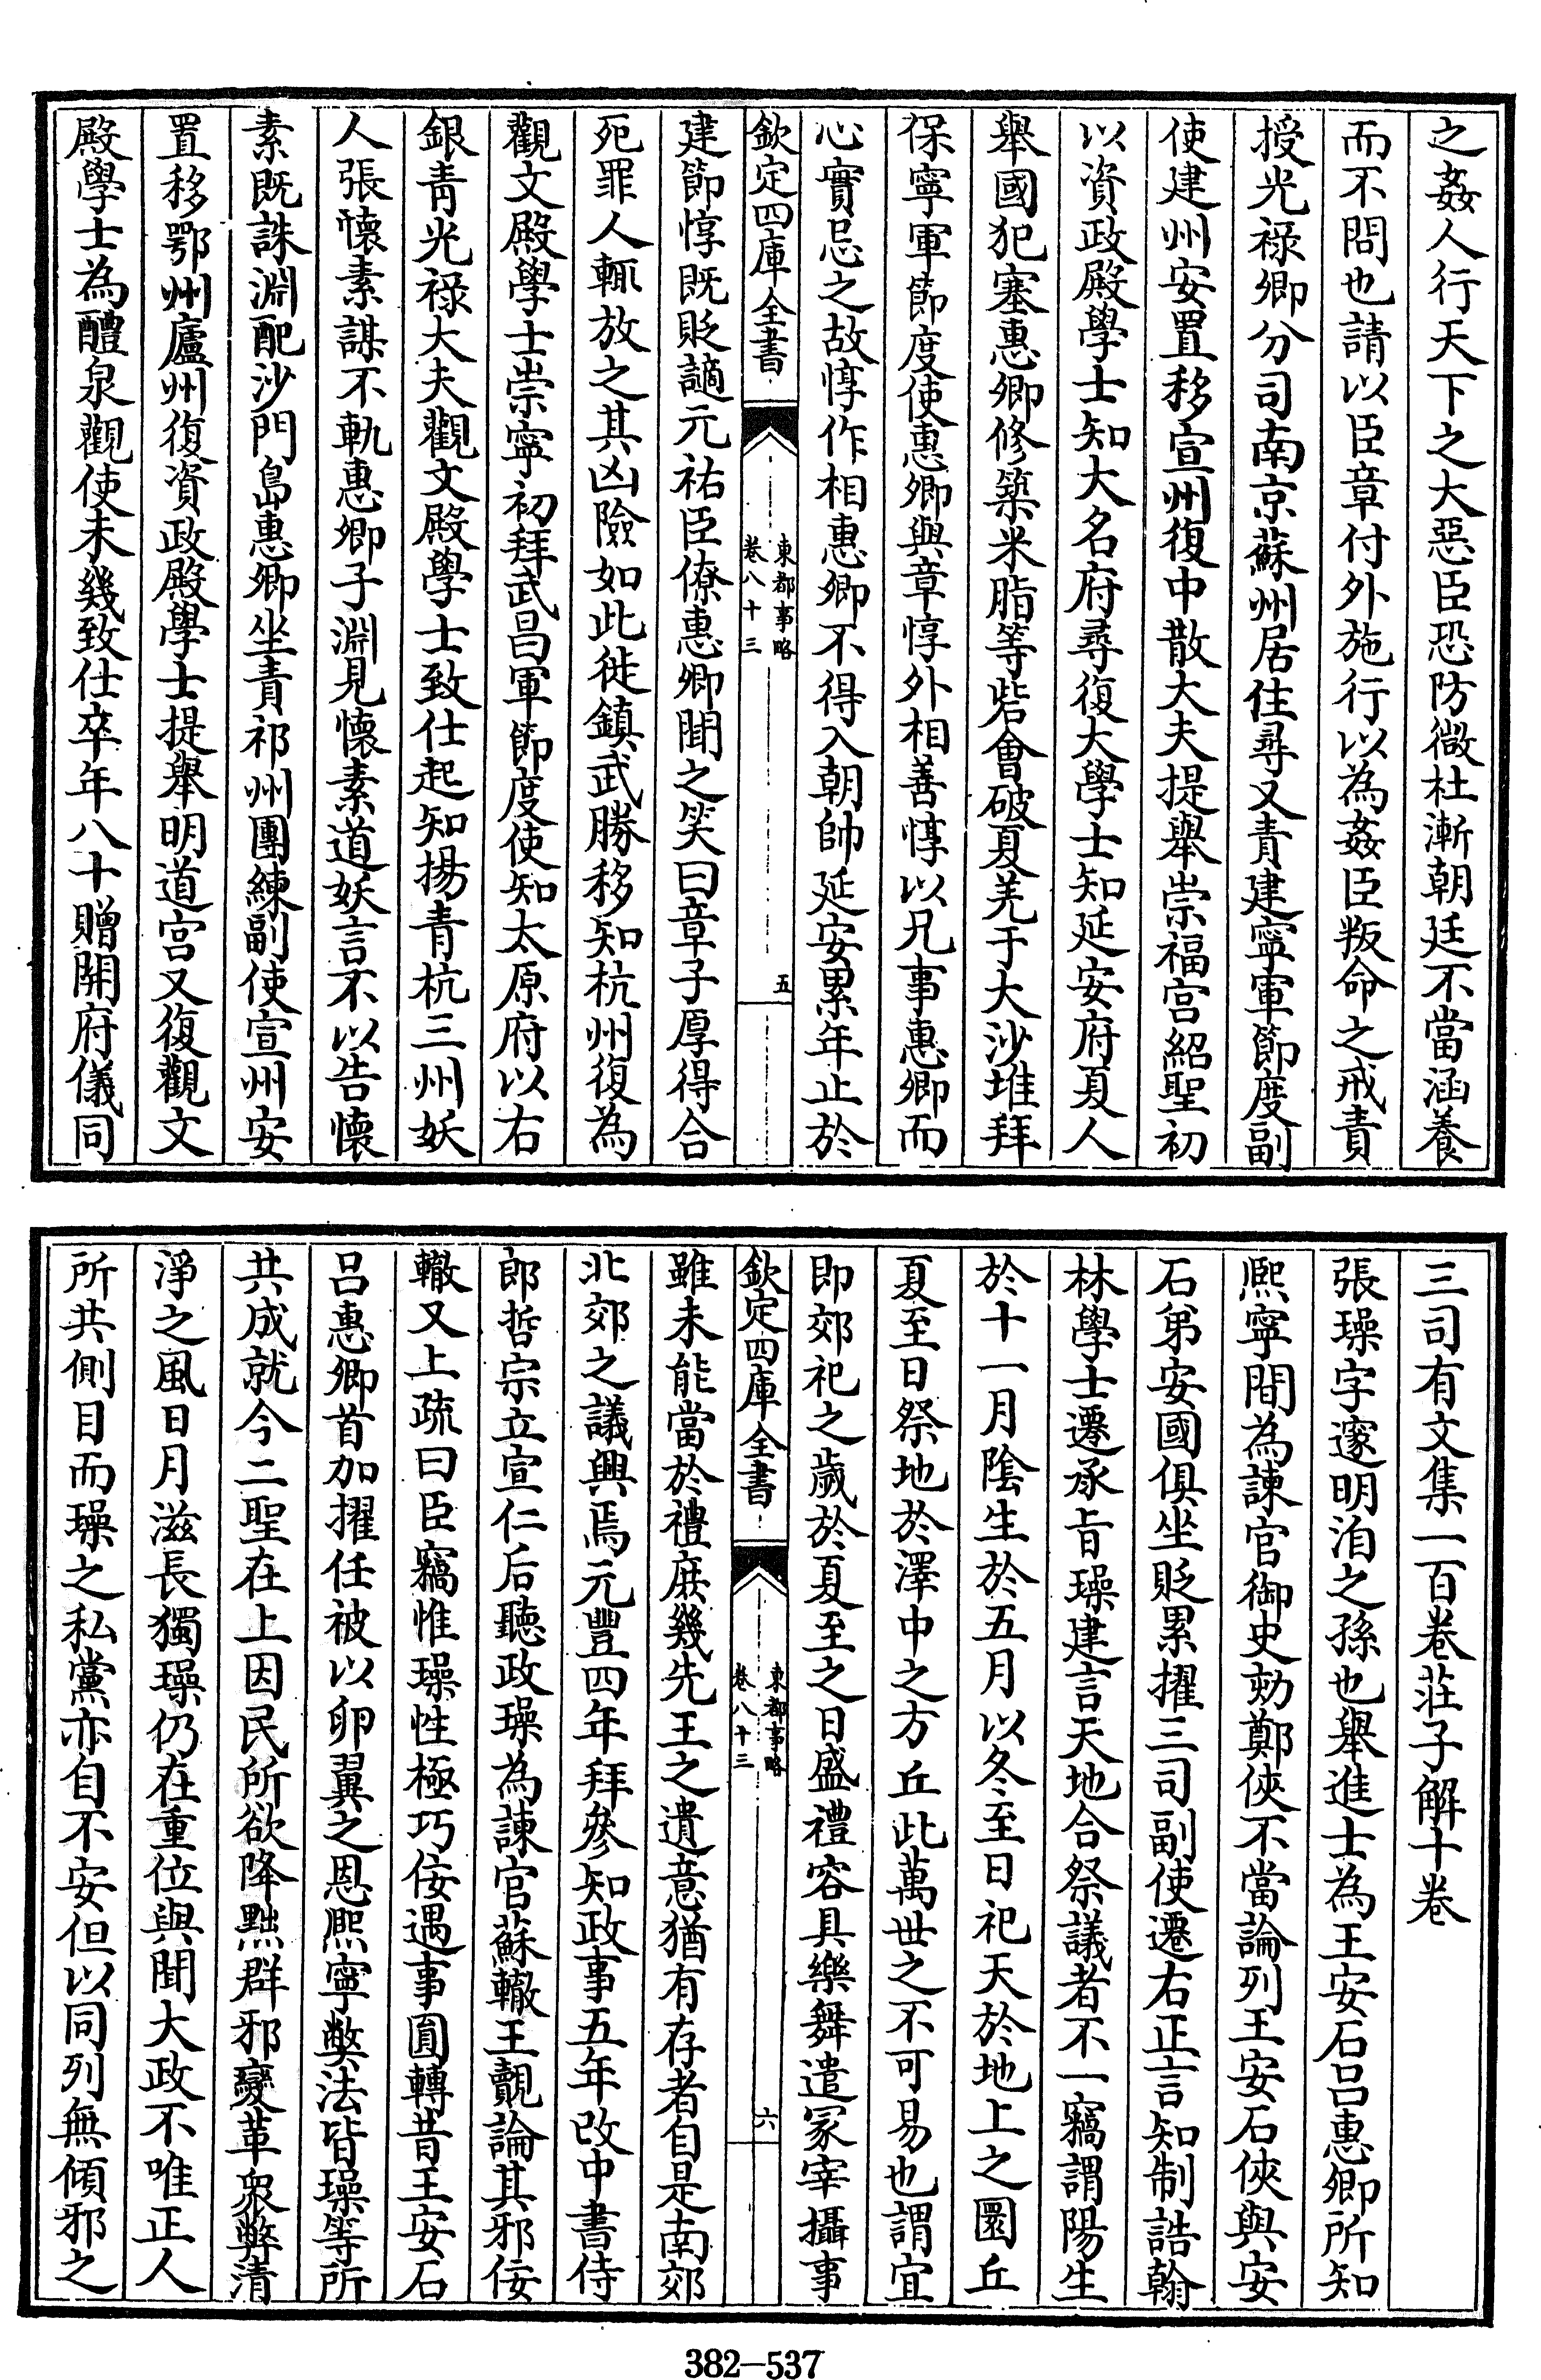 之姦人行天下之大惡臣恐防微杜漸朝廷不當涵養
而不問也請以臣章付外施行以為姦臣叛命之戒責
授光祿卿分司南京蘇州居住尋又責建寧軍節度副
使建州安置移宣州復中散大夫提舉崇福宫紹聖初
以資政殿學士知大名府尋復大學士知延安府夏人
舉國犯塞惠卿修築米脂等砦會破夏羌于大沙堆拜
保寧軍節度使惠卿與章惇外相善惇以凡事惠卿而
心實忌之故惇作相惠卿不得入朝帥延安累年止於
欽定四庫全書
東都事略
卷八十三
五
建節惇既貶謫元祐臣僚惠卿聞之笑曰章子厚得合
死罪人輒放之其凶險如此徙鎮武勝移知杭州復為
觀文殿學士崇寧初拜武昌軍節度使知太原府以右
銀青光禄大夫觀文殿學士致仕起知揚青杭三州妖
人張懷素謀不軌惠卿子淵見懷素道妖言不以告懷
素既誅淵配沙門島惠卿坐責祁州團練副使宣州安
置移鄂州廬州復資政殿學士提舉明道宫又復觀文
殿學士為醴泉觀使未幾致仕卒年八十贈開府儀同
三司有文集一百卷莊子解十卷
張璪字邃明洎之孫也舉進士為王安石吕惠卿所知
熙寧間為諫官御史劾鄭俠不當論列王安石俠與安
石弟安國俱坐貶累擢三司副使遷右正言知制誥翰
林學士遷承旨璪建言天地合祭議者不一竊謂陽生
於十一月陰生於五月以冬至日祀天於地上之圜丘
夏至日祭地於澤中之方丘此萬世之不可易也謂宜
即郊祀之歲於夏至之日盛禮容具樂舞遣冢宰攝事
欽定四庫全書
東都事略
卷八十三
六
雖未能當於禮庶幾先王之遺意猶有存者自是南郊
北郊之議興焉元豐四年拜參知政事五年改中書侍
郎哲宗立宣仁后聽政璪為諫官蘇轍王覿論其邪佞
轍又上疏曰臣竊惟璪性極巧佞遇事圓轉昔王安石
吕惠卿首加擢任被以卵翼之恩熙寧弊法皆璪等所
共成就今二聖在上因民所欲降黜群邪變革衆弊清
淨之風日月滋長獨璪仍在重位與聞大政不唯正人
所共側目而璪之私黨亦自不安但以同列無傾邪之
382-537